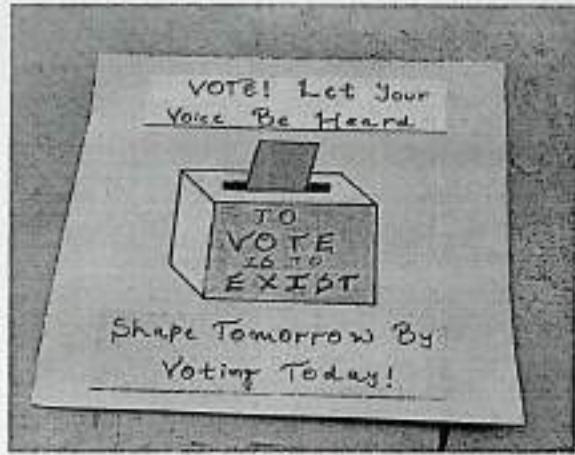 VOTE! Let Your
Voice Be Heard
TO
VOTE
IS TO
EXIST
Shape Tomorrow By
Voting Today!